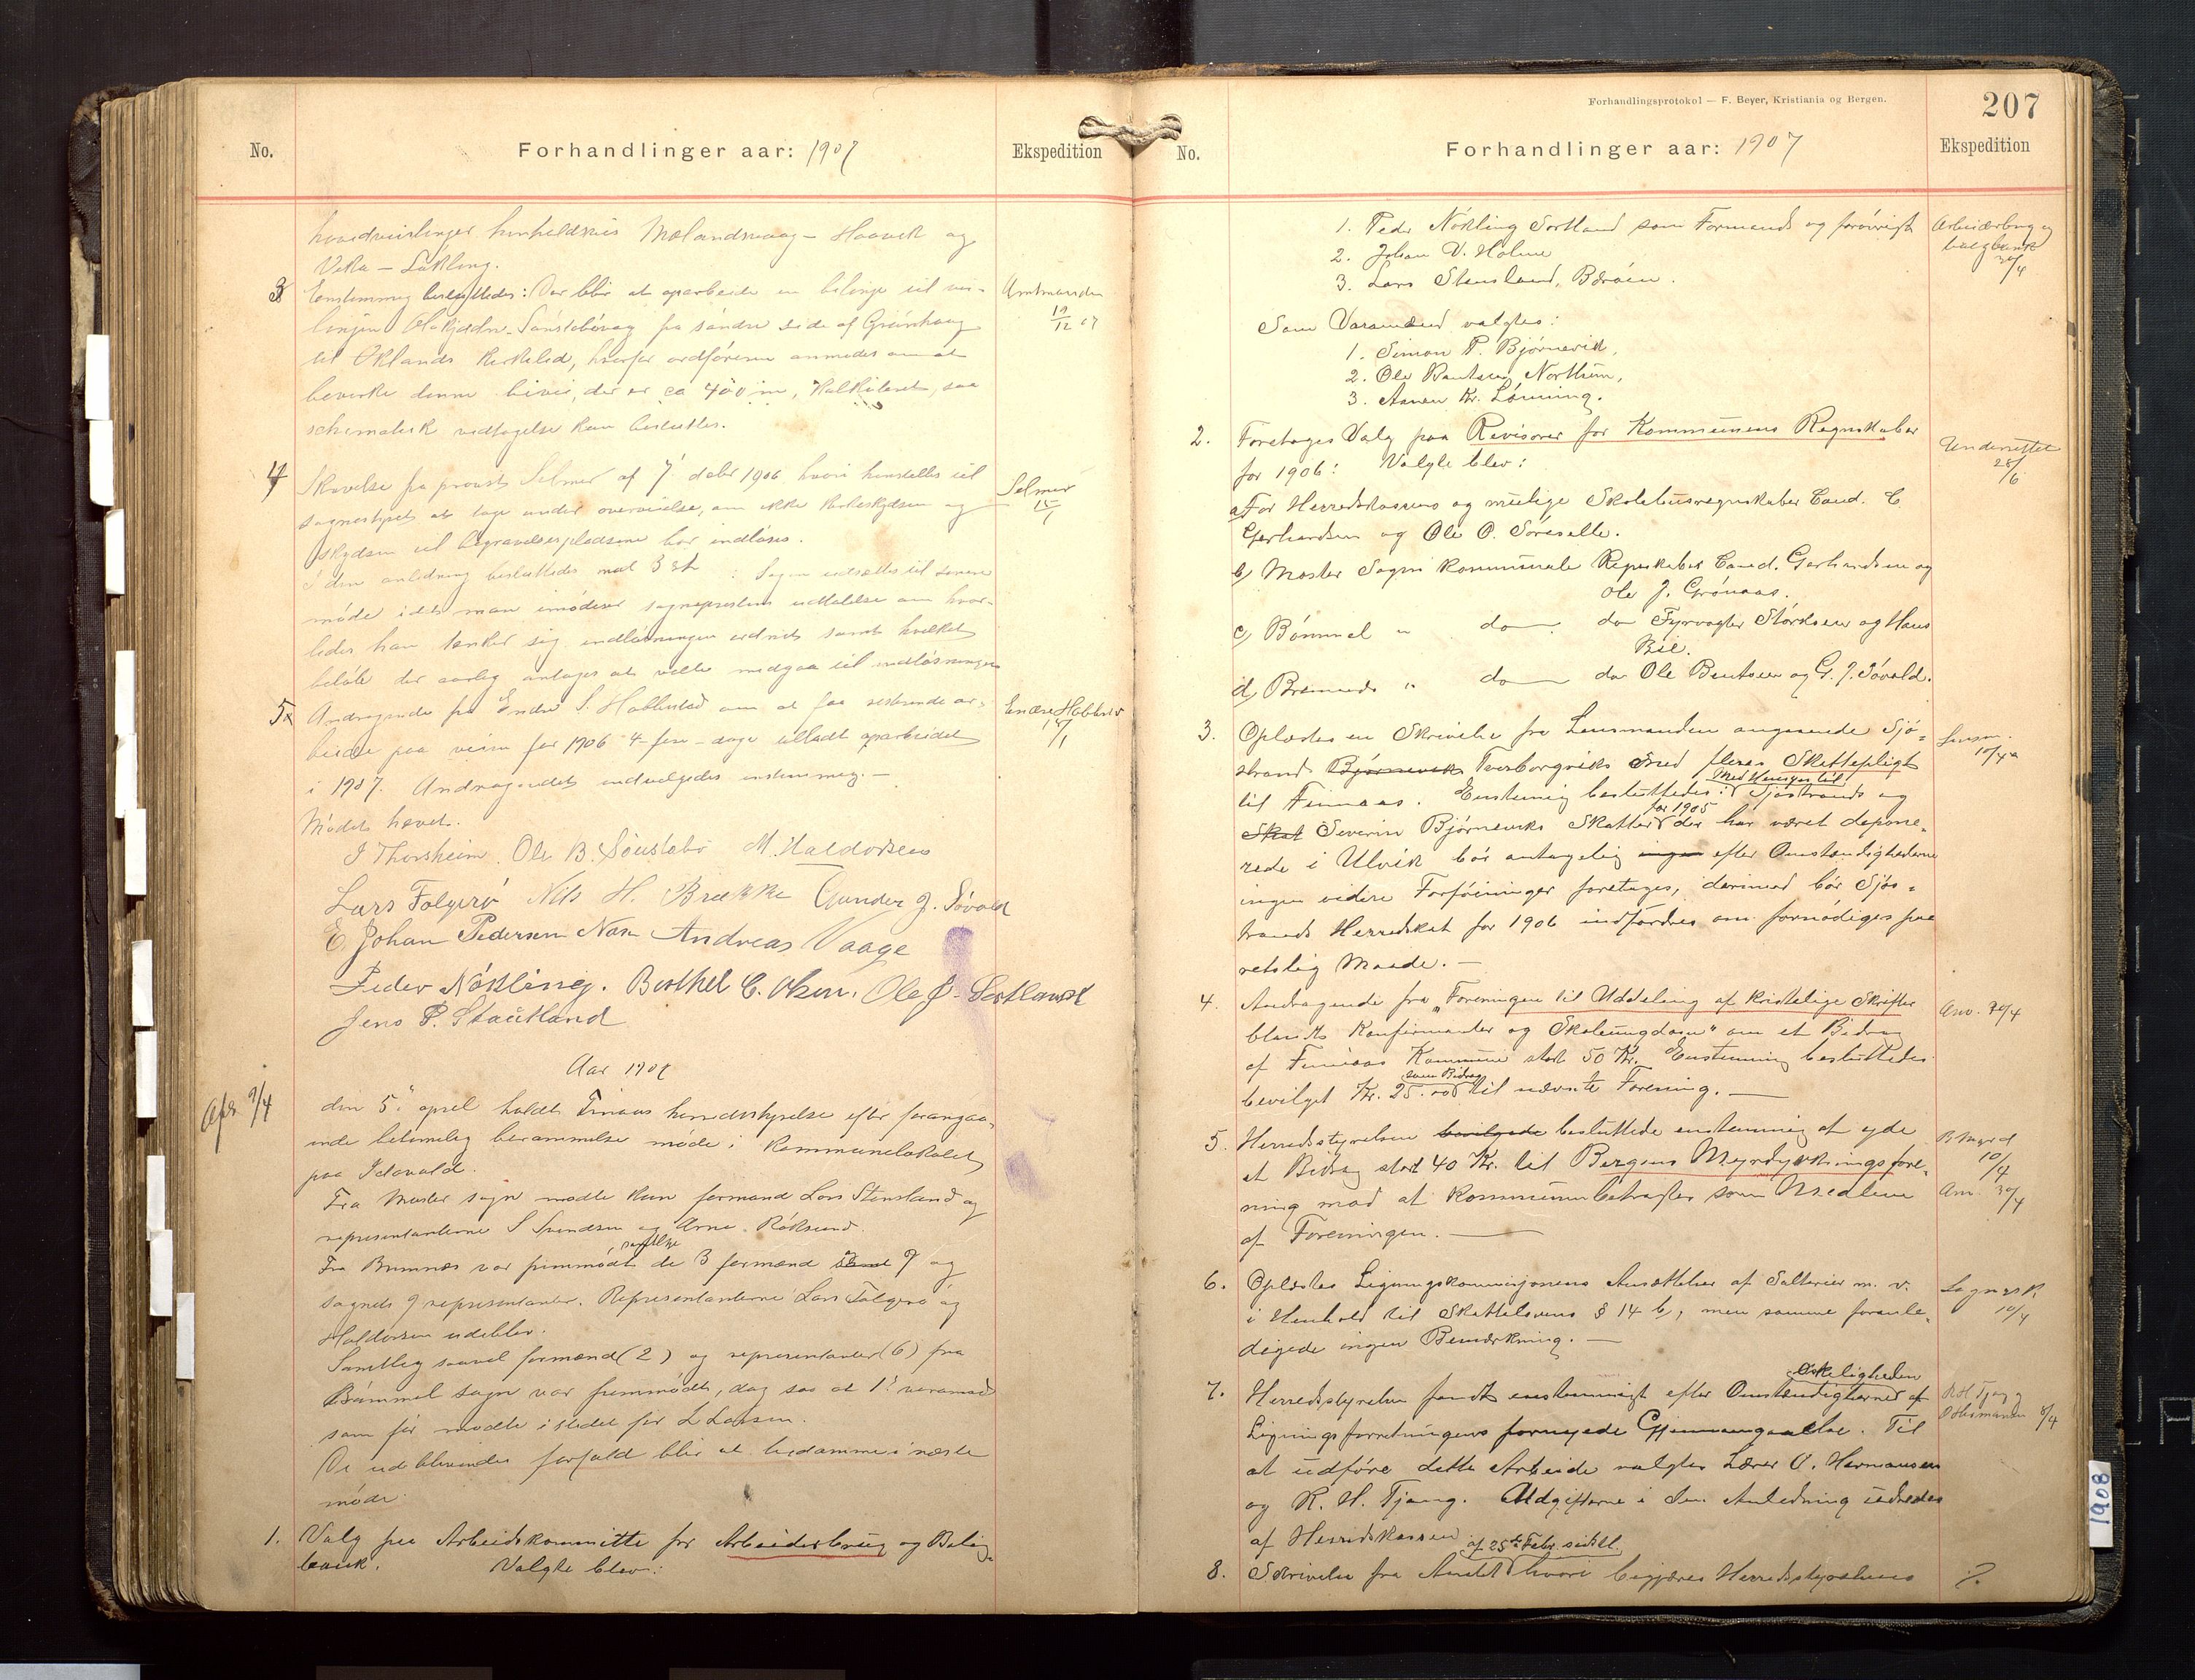 No.
Forhandlinger aar: 1907
Ekspedition
hovedveistenger henholdsvis Mælandsvaag - Haavik og
Vika - Løkling.
3
Enstemmig besluttedes: Der blir at oparbeide en
linjen Siggjedn - Sønstabøvaag fra søndre side af Grønhaug
til Øklands Kirkeled, hvorfor ordføreren anmodes om at
bevirke denne bivei, der er ca 400 m, Kalkuleret, saa
schematisk vedtagelse kan besluttes.
Amtmanden
12 07
4
Skrivelse fra provst Selmer af 7' debr 1906 hvori henstilles til
sognestyret at tage under overveielse, om ikke Kirkeskydsen og
skydsen til begravelsespladsene bør indløses.
I den anledning besluttedes mod 3 st : Sagen udsættes til senere
møde idet man imødeser sogneprestens udtalelse om hvor-
ledes han tænker sig indløsningen ordnet samt hvilket
beløb der aarlig antages at ville medgaa til indløsningen
Selmer
15/1
5
Andragende fra Endre S. Hallestad om at faa resterende ar-
beide paa veien for 1906 4 - fire - dage tilladt oparbeidet
i 1907. Andragendet indvilgedes enstemmig. -
Endre Hallest
15/1
Mødet hævet.
J Thorsheim. Ole B. Sønstabø M. Haldorsen
Lars Folgerø Nils H. Brække Gunder J. Søvold
E. Johan Pedersen Næse Andreas Vaage
Peder Nökling. Berthel C. Olsen. Ole J. Sortland
Jens P. Stautland
Aar 1907
Afs. 9/4
den 5. april holdt Finaas herredsstyrelse efter forangaa-
ende betimelig berammelse møde i Kommunelokalet
paa Idavold.
Fra Moster sogn mødte kun formand Lars Stensland og
representanterne S Svendsen og Arne Röksund.
Fra Bremnes var fremmødt samtlige de 3 formænd samt 9 og
sognets 9 representanter. Representanterne Lars Folgerø og
Haldorsen udeblev.
Samtlig saavel formænd (2) og representanter (6) fra
Bømmel sogn var fremmødt, dog saa at 1ste varamand
som før mødte istedet for L Larsen.
De udeblivendes forfald blir at bedømme i næste
møde.
1. Valg paa Arbeidskommitte for Arbeiderbrug og Bolig-
bank. Valgte blev:
Forhandlingsprotokol — F. Beyer, Kristiania og Bergen.
207
No.
Forhandlinger aar: 1907
Ekspedition
1. Peder Nökling Sortland som Formand og forøvrigt
2. Johan V. Holme
3. Lars Stensland, Bærøen.
Arbeiderbrug og
boligbank
30/4
Som Varamænd valgtes:
1. Simon P. Bjørnevik,
2. Ole Bentsen Nortun,
3. Aanen Kr. Lønning.
2. Foretoges Valg paa Revisorer for Kommunens Regnskaber
for 1906: Valgte blev:
Underrettet
28/6
a, For Herredskassens og mulige Skolehusregnskaber Cand. C.
Gerhardsen og Ole O. Søreselle.
b, Moster Sogns Kommunale Regnskaber Cand. Gerhardsen og
Ole J. Grønaas.
c, Bømmel " do do Fyrvogter Størksen og Hans
Bee.
d, Bremnes " do do Ole Bentsen og G. J. Søvold.
3. Oplæstes en Skrivelse fra Lensmanden angaaende Sjø-
strand Bjørneviks Tverborgviks med fleres Skattepligt
til Finnaas. Enstemig besluttedes: Med Hensyn til Sjøstrands og
Skat Severin Bjørneviks Skatter for 1905 der har været depone-
rede i Ulvik bør antagelig ingen efter Omstændighederne
ingen videre Forføininger foretages, derimod bør Sjøs-
trands Herredskat for 1906 indfordres om fornødiges paa
retslig Maade. -
Lensm.
10/4
4. Andragende fra "Foreningen til Uddeling af Kristelige Skrifter
blandt Konfirmanter og Skoleungdom" om et Bidrag
af Finnaas Kommune stort 50 Kr. Enstemmig besluttedes
bevilget Kr. 25.00 som Bidrag til nævnte Forening. -
Anv. 30/4
5. Herredsstyrelsen bevilgede besluttede enstemmig at yde
et Bidrag stort 40 Kr. til Bergens Myrdyrkningsfore-
ning mod at Kommunen betragtes som Medlem
af Foreningen.
B Myrd
10/4
Anv. 30/4
6. Oplæstes Ligningskommisjonens Ansættelser af Sallerier m. v.
i Henhold til Skattelovens § 14 b, men samme foranle-
digede ingen Bemærkning. -
10/4
7. Herredsstyrelsen fandt enstemmigt efter Omstændighederne Ønskeligheden af
Ligningsforretningens fornyede Gjennemgaaelse. Til
at udføre dette Arbeide valgtes Lærer O. Hermansen
og R. H. Tjong. Udgifterne i den Anledning udredes
af Herredskassen
R H Tjong og
O Hermansen 8/4
8. Skrivelse fra Amtet af 25de Febr. sidstl. hvori begjæres Herredsstyrelsens
1908